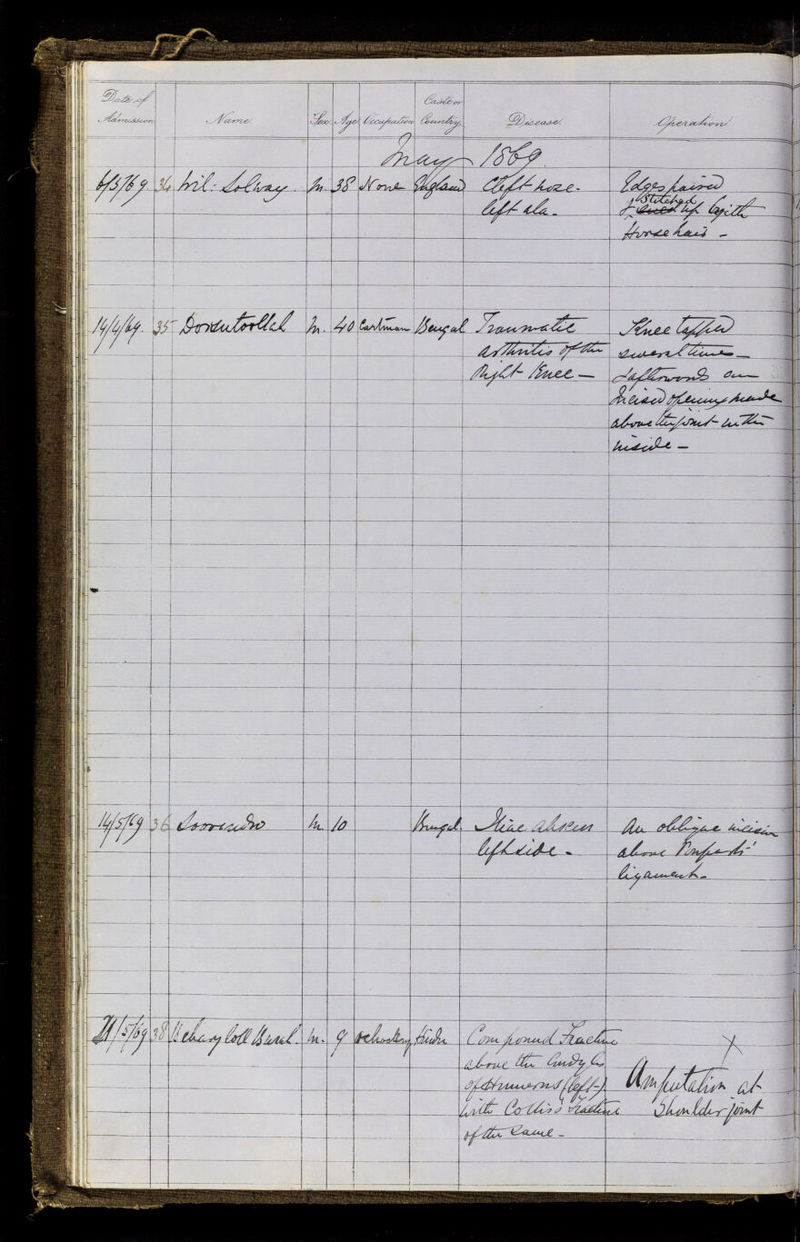 Date of Admission Name Sex Age Occupation Caste or Country Disease Operation
May 1869
6/5/69 34 Wil: Solway M. 38 None England Cleft nose - Edges paired
left ala - & stitched up with
Horse hair -
14/4/69. 35 M. 40 Cartman Bengal Traumatic Knee tapped
arthritis of the several times -
Right Knee - & afterwards an
Incised opening made
above the joint on the
inside -
14/5/69 36 M. 10 Bengal Iliac abscess An oblique incision
left side - above Pouparts'
ligament -
21/5/69 38 M. 9 Hindu Compound Fracture X
above the Condyles
of Humerus (left) Amputation at
with Collis's Fracture Shoulder joint
of the same -